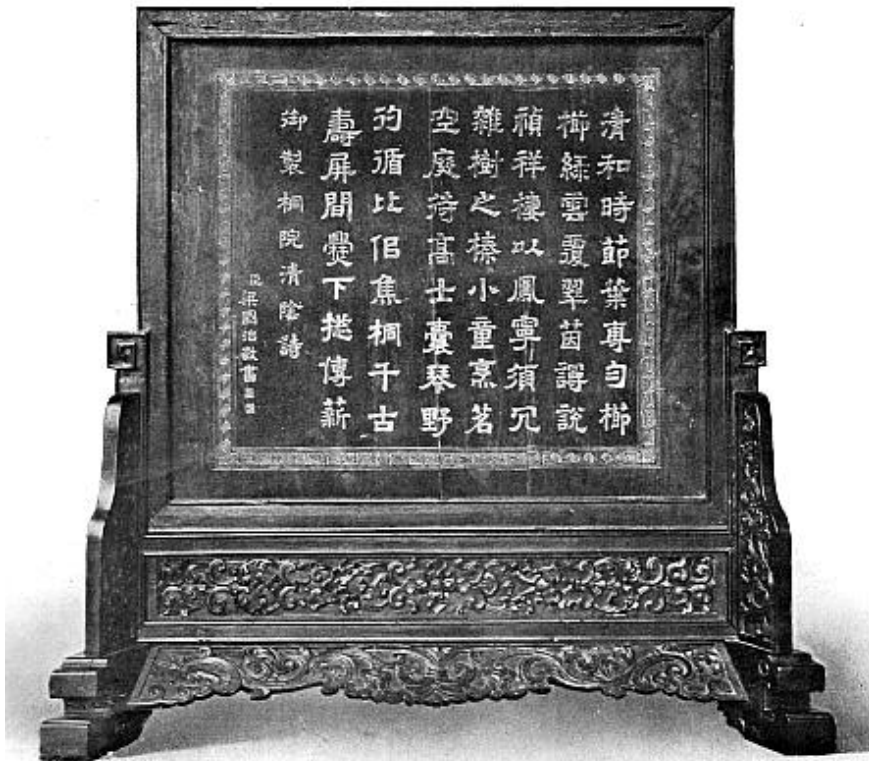 清和時節葉專勻櫛
櫛綠雲覆翠茵謾說
禎祥棲以鳳寧須冗
雜樹之榛小童烹茗
空庭待高士囊琴野
彴循比侶焦桐千古
壽屏間爨下挻傳薪
御製桐院清陰詩
臣梁國治敬書